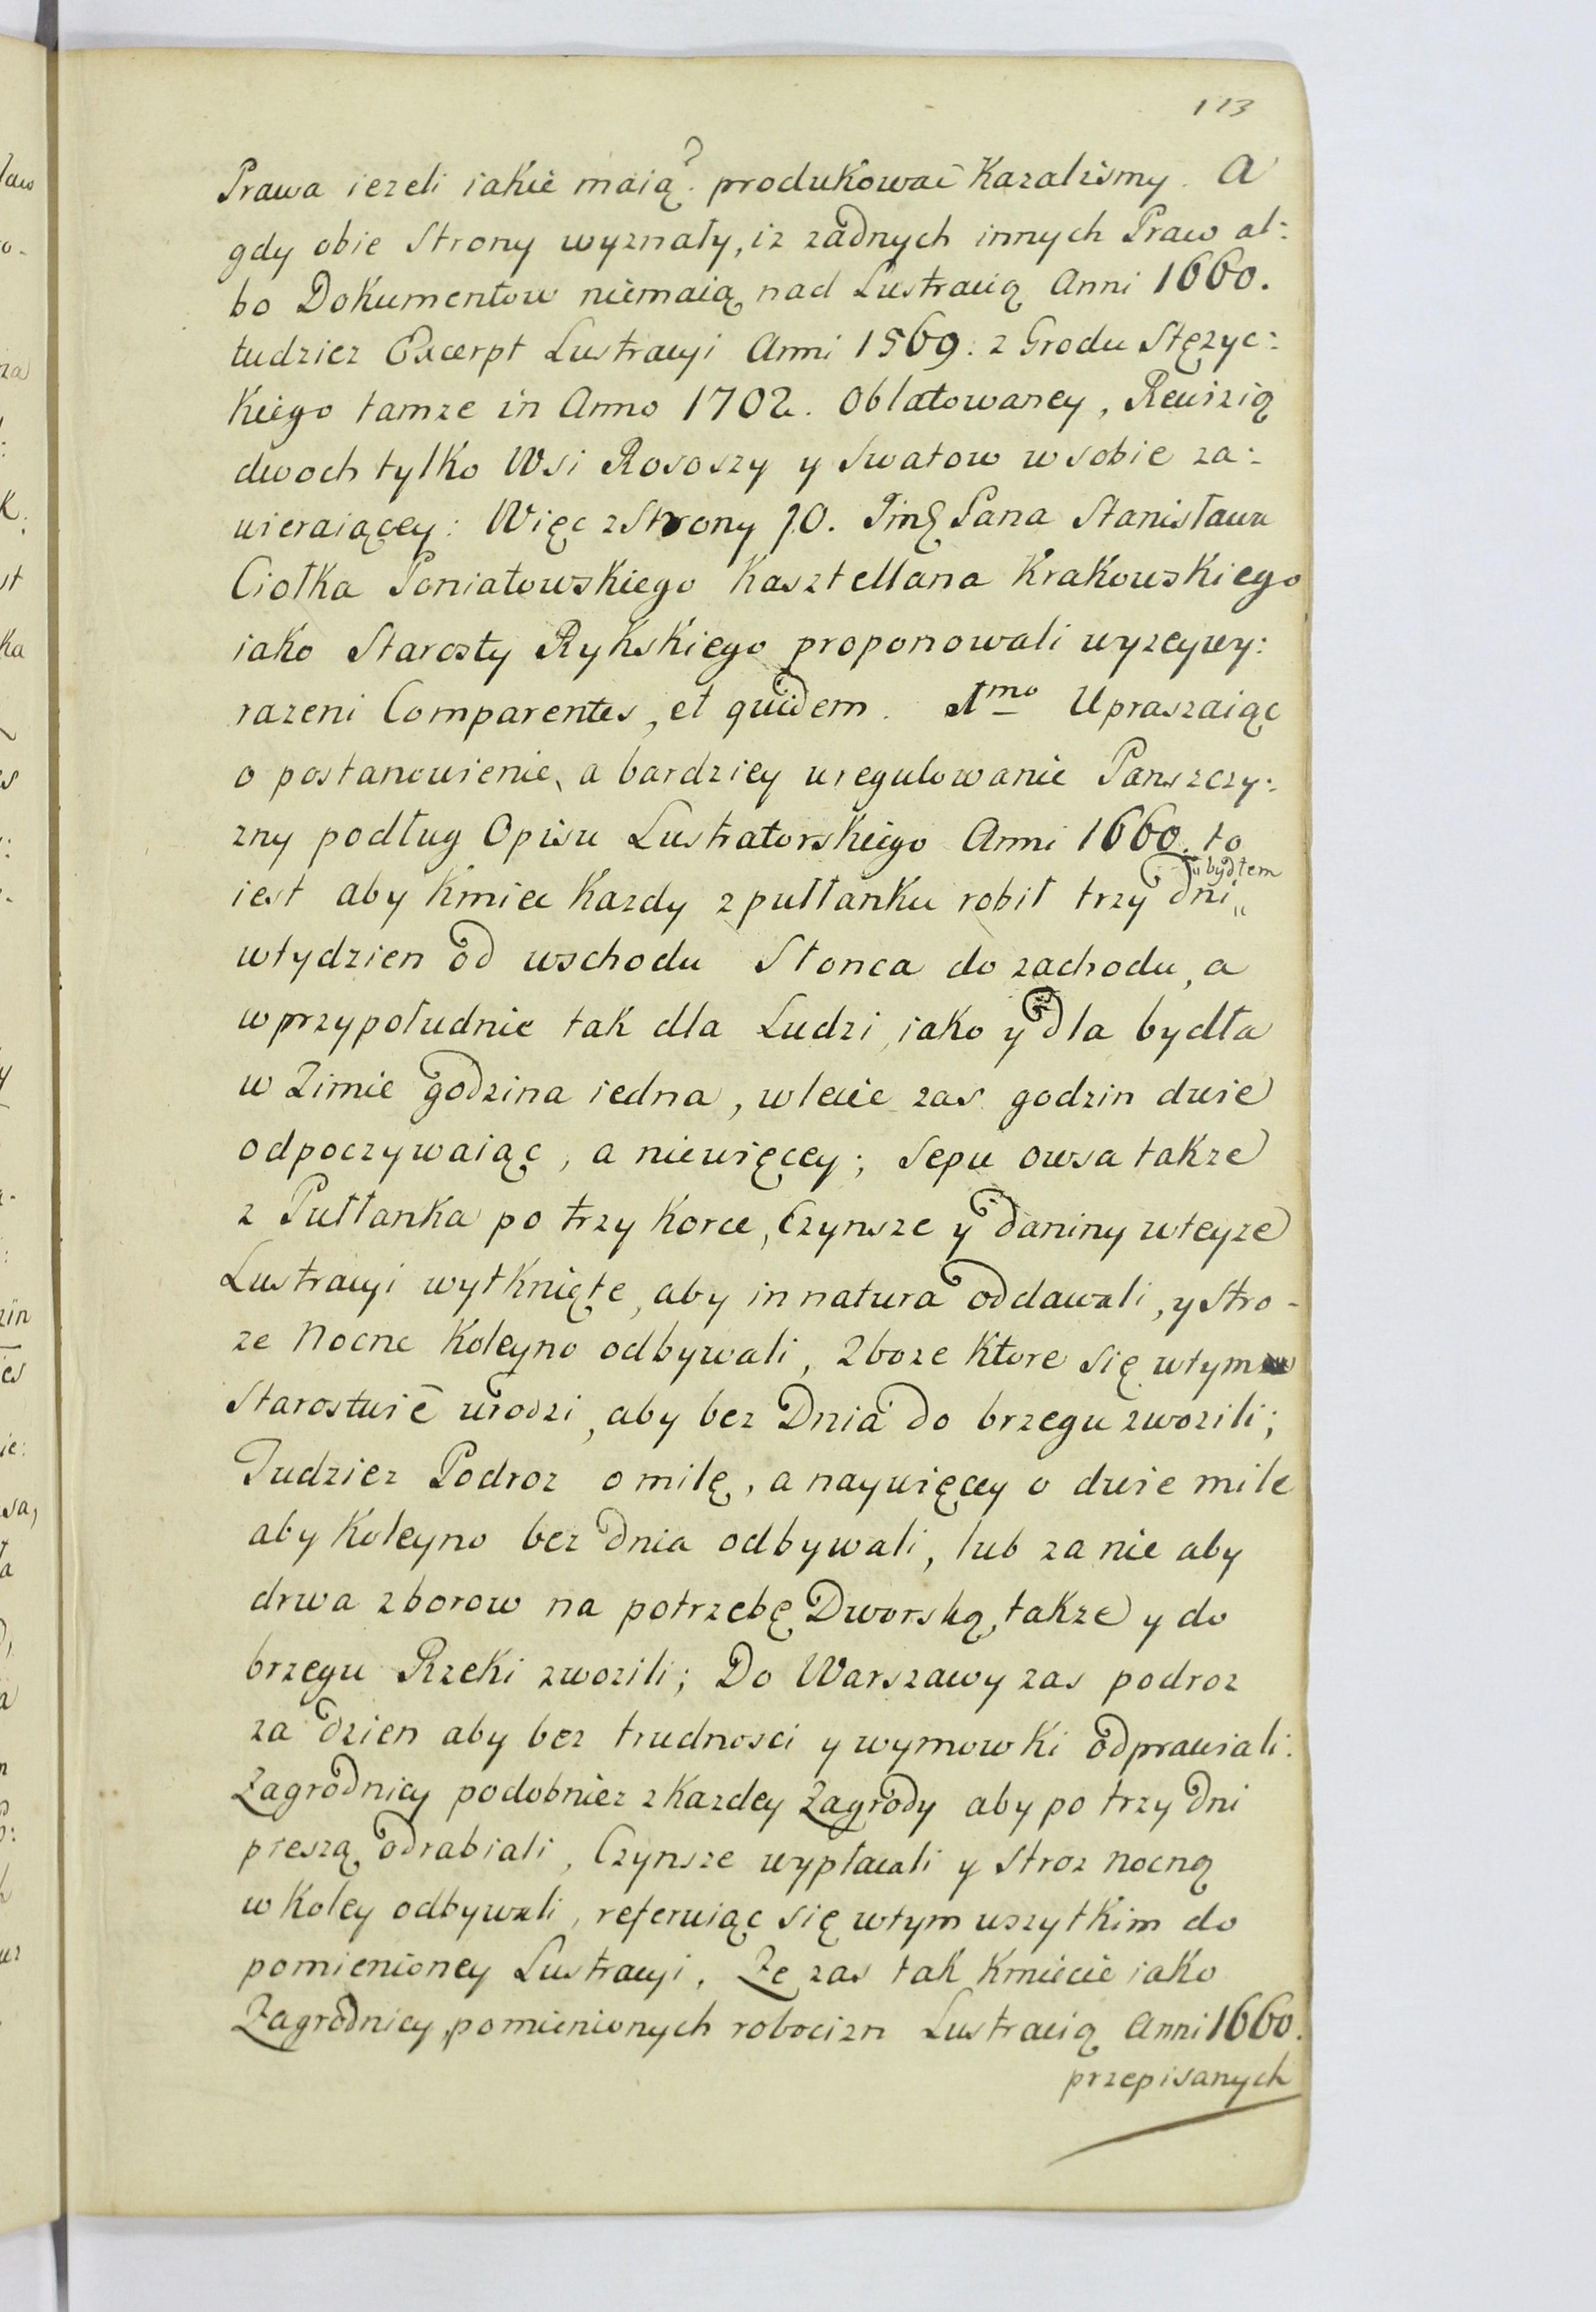 113
Prawa iezeli iakie maią? produkować Kazalismy. A
gdy obie Strony wyznały, iz zadnych innych Praw al:
bo Dokumentow niemaią nad Lustracią Anni 1660.
tudziez Excerpt Lustracyi Anni 1569. z Grodu Stęzyc:
kiego tamze in Anno 1702. Oblatowaney, Rewizią
dwoch tylko Wsi Rososzy y Swatow w sobie za:
wieraiącey: Więc z Strony JO. Jmć Pana Stanisława
Ciołka Poniatowskiego Kasztellana Krakowskiego
iako Starosty Rykskiego proponowali wyzeywy:
razeni Comparentes, et quidem. 1mo Upraszaiąc
o postanowienie, a bardziey uregulowanie Panszczy:
zny podług Opisu Lustratorskiego Anni 1660. to
iest aby Kmiec Kazdy z pułłanku robił trzy dni bydłem
w tydzien od wschodu Słonca do zachodu, a
w przypołudnie tak dla Ludzi, iako y dla bydła
w Zimie godzina iedna, w lecie zas godzin dwie
odpoczywaiąc, a niewięcey; Sepu owsa takze
z Pułłanka po trzy Korce, Czynsze y daniny w teyze
Lustracyi wytknięte, aby in natura oddawali, y Stro-
ze Nocne Koleyno odbywali, Zboze Ktore się w tym
Starostwie urodzi, aby bez Dnia do brzegu zwozili;
Tudziez Podroz o milę, a naywięcey o dwie mile
aby Koleyno bez dnia odbywali, lub za nie aby
drwa z borow na potrzebę Dworską, takze y do
brzegu Rzeki zwozili; Do Warszawy zas podroz
za dzien aby bez trudnosci y wymowki odprawiali.
Zagrodnicy podobniez z Kazdey Zagrody aby po trzy Dni
pieszą odrabiali, Czynsze wypłacali y Stroz nocną
w Koley odbywali, referuiąc się w tym wszytkim do
pomienioney Lustracyi. Ze zas tak Kmiecie iako
Zagrodnicy pomienionych robocizn Lustracią Anni 1660.
przepisanych